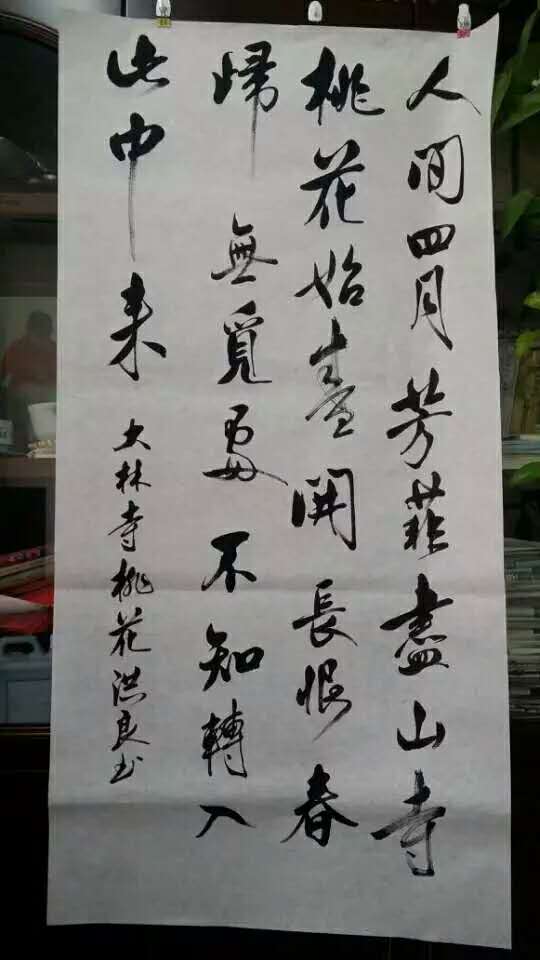 人間四月芳菲盡山寺
桃花始盡開長恨春
歸無覓處不知轉入
此中来
大林寺桃花洪良书